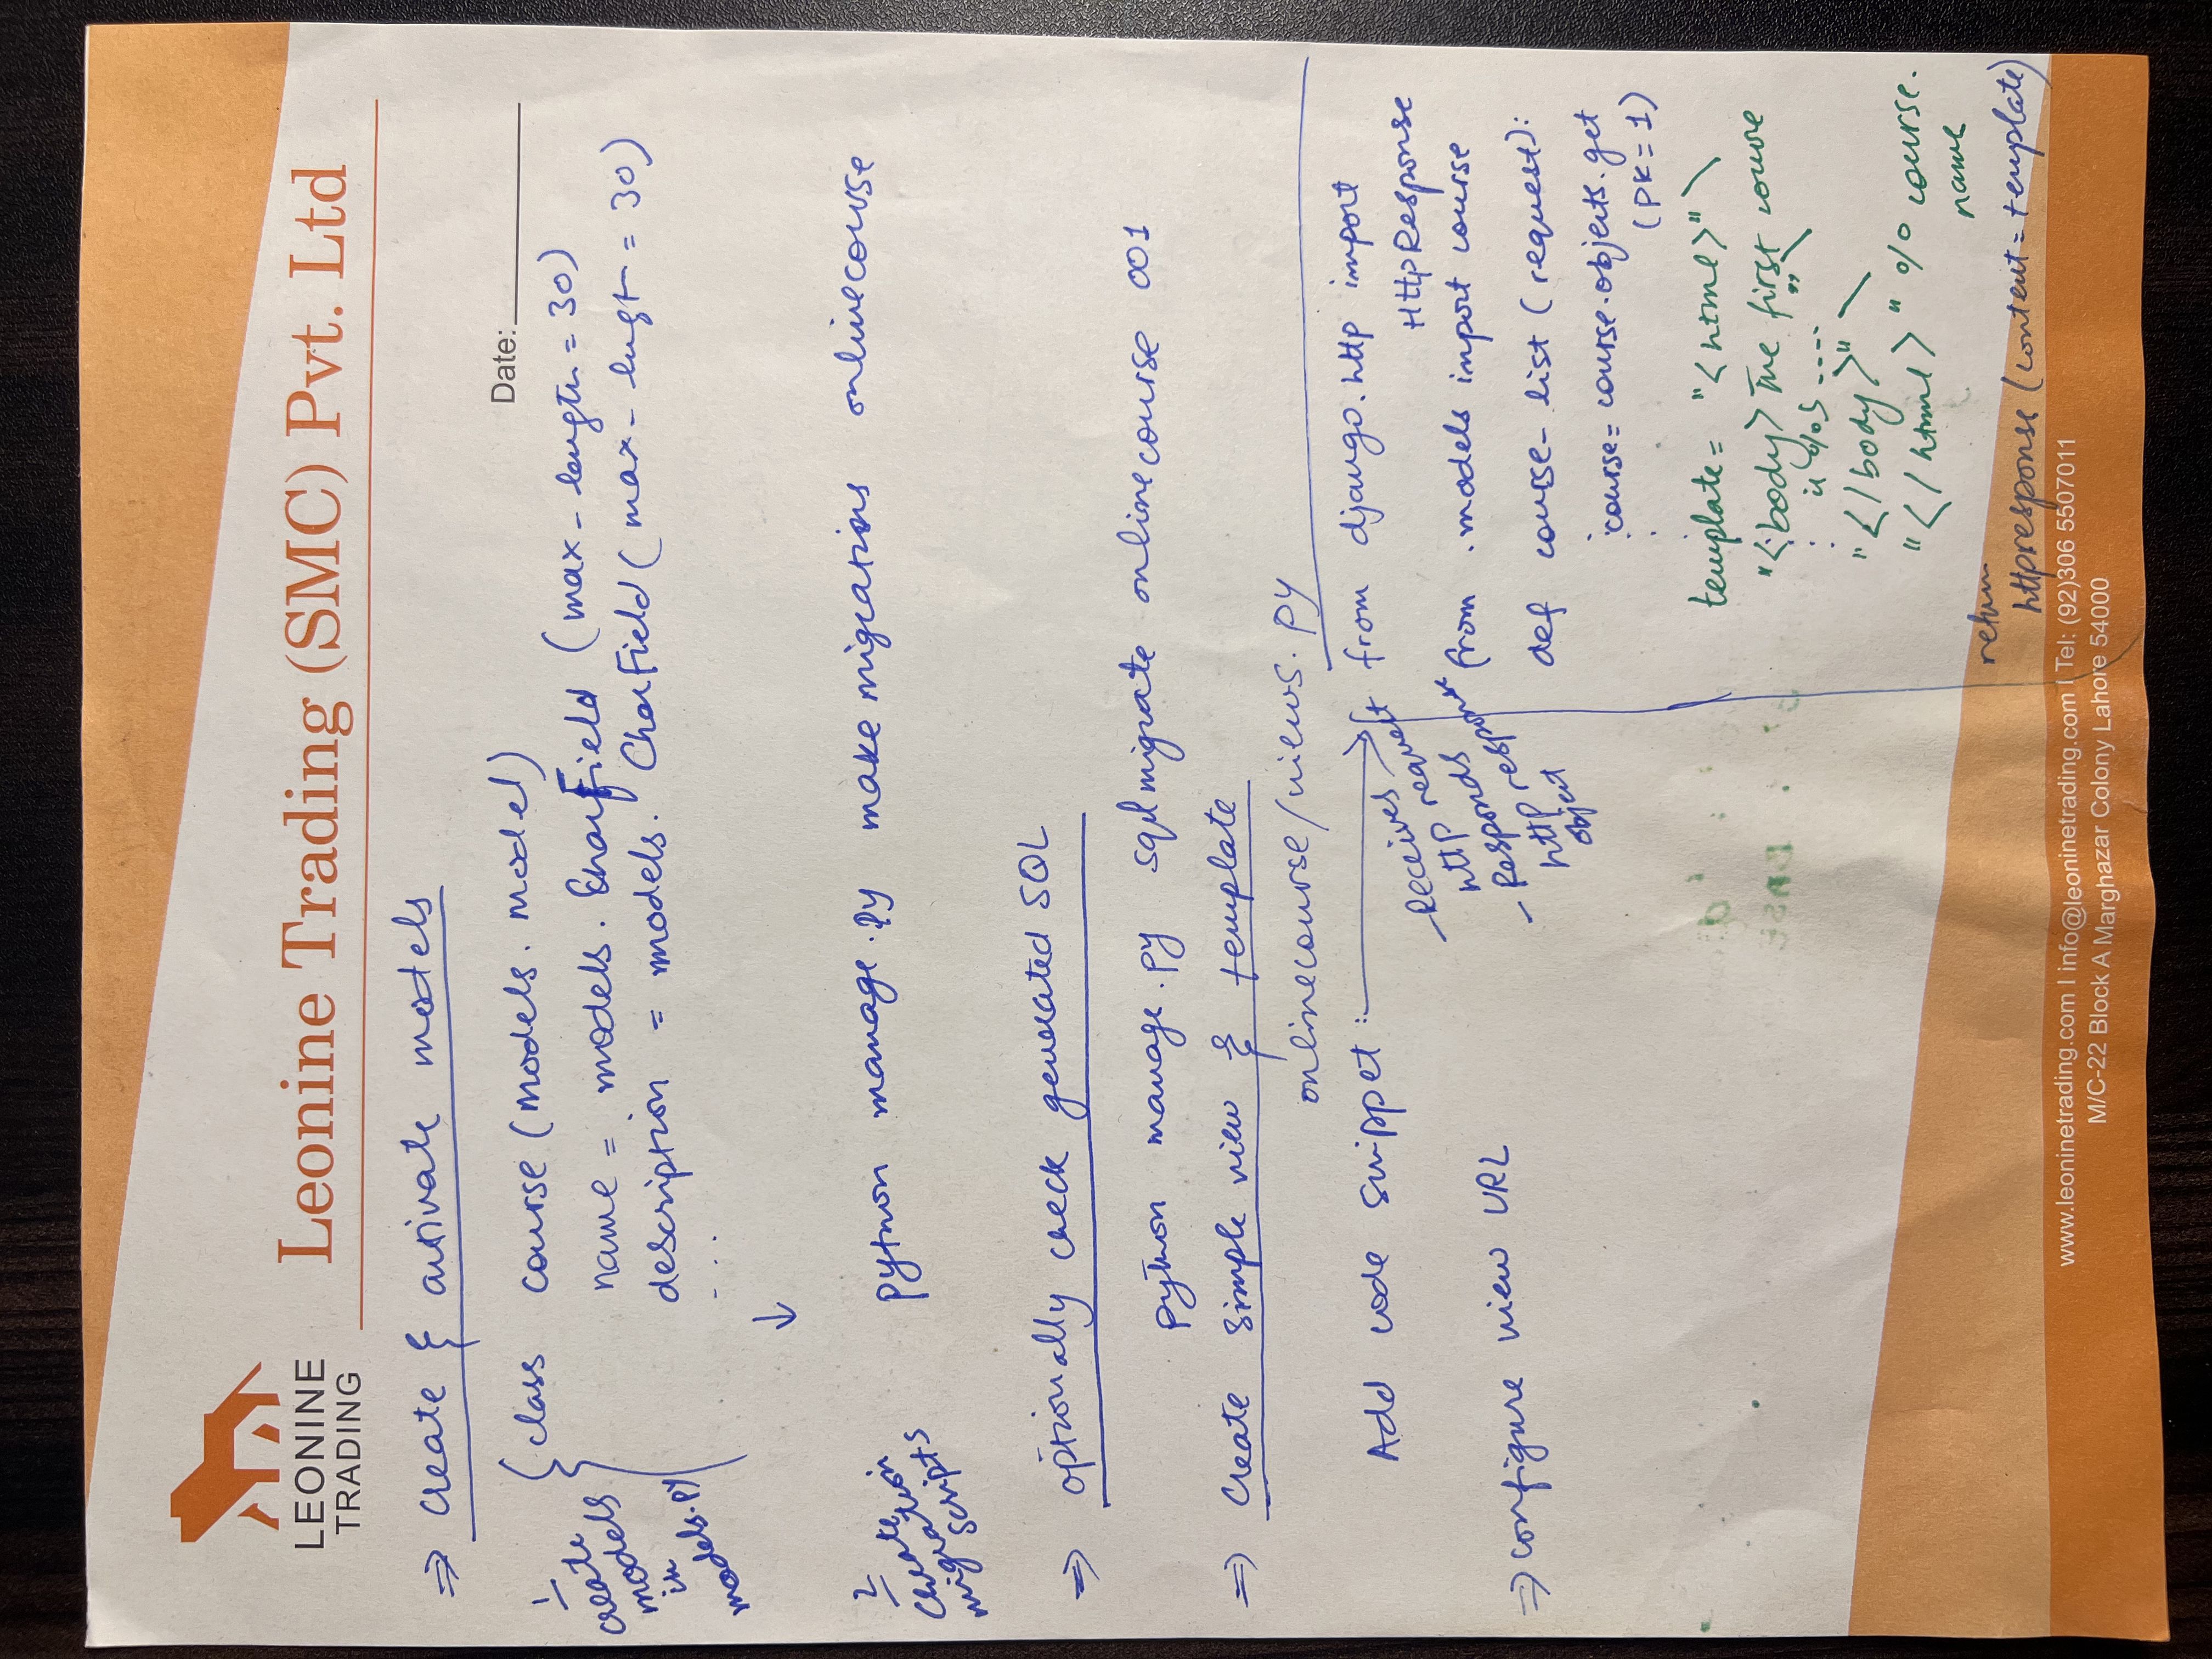 LEONINE
TRADING
Leonine Trading (SMC) Pvt. Ltd
Date:
⇒ create & activate models
1- create models in models.py
class course (models. model)
name = models. CharField (max-length = 30)
description = models. CharField (max-lengt = 30)
- ...
↓
2- migration script
python manage.py makemigrations onlinecourse
⇒ optionally check generated SQL
python manage.py sqlmigrate onlinecourse 001
⇒ Create simple view & template
onlinecourse/views.py
Add code snippet :
- Receives
HTTP request
responds
- Responds
http
object
from django.http import
HttpResponse
from .models import course
def course-list (request):
course = course.objects.get
(pk=1)
template = "<html>" \
"<body> The first course
is %s ....." \
"</body>" \
"</html>" % course.
name
return
httpresponse (content = template)
⇒ configure view URL
www.leoninetrading.com I info@leoninetrading.com I Tel: (92)306 5507011
M/C-22 Block A Marghazar Colony Lahore 54000